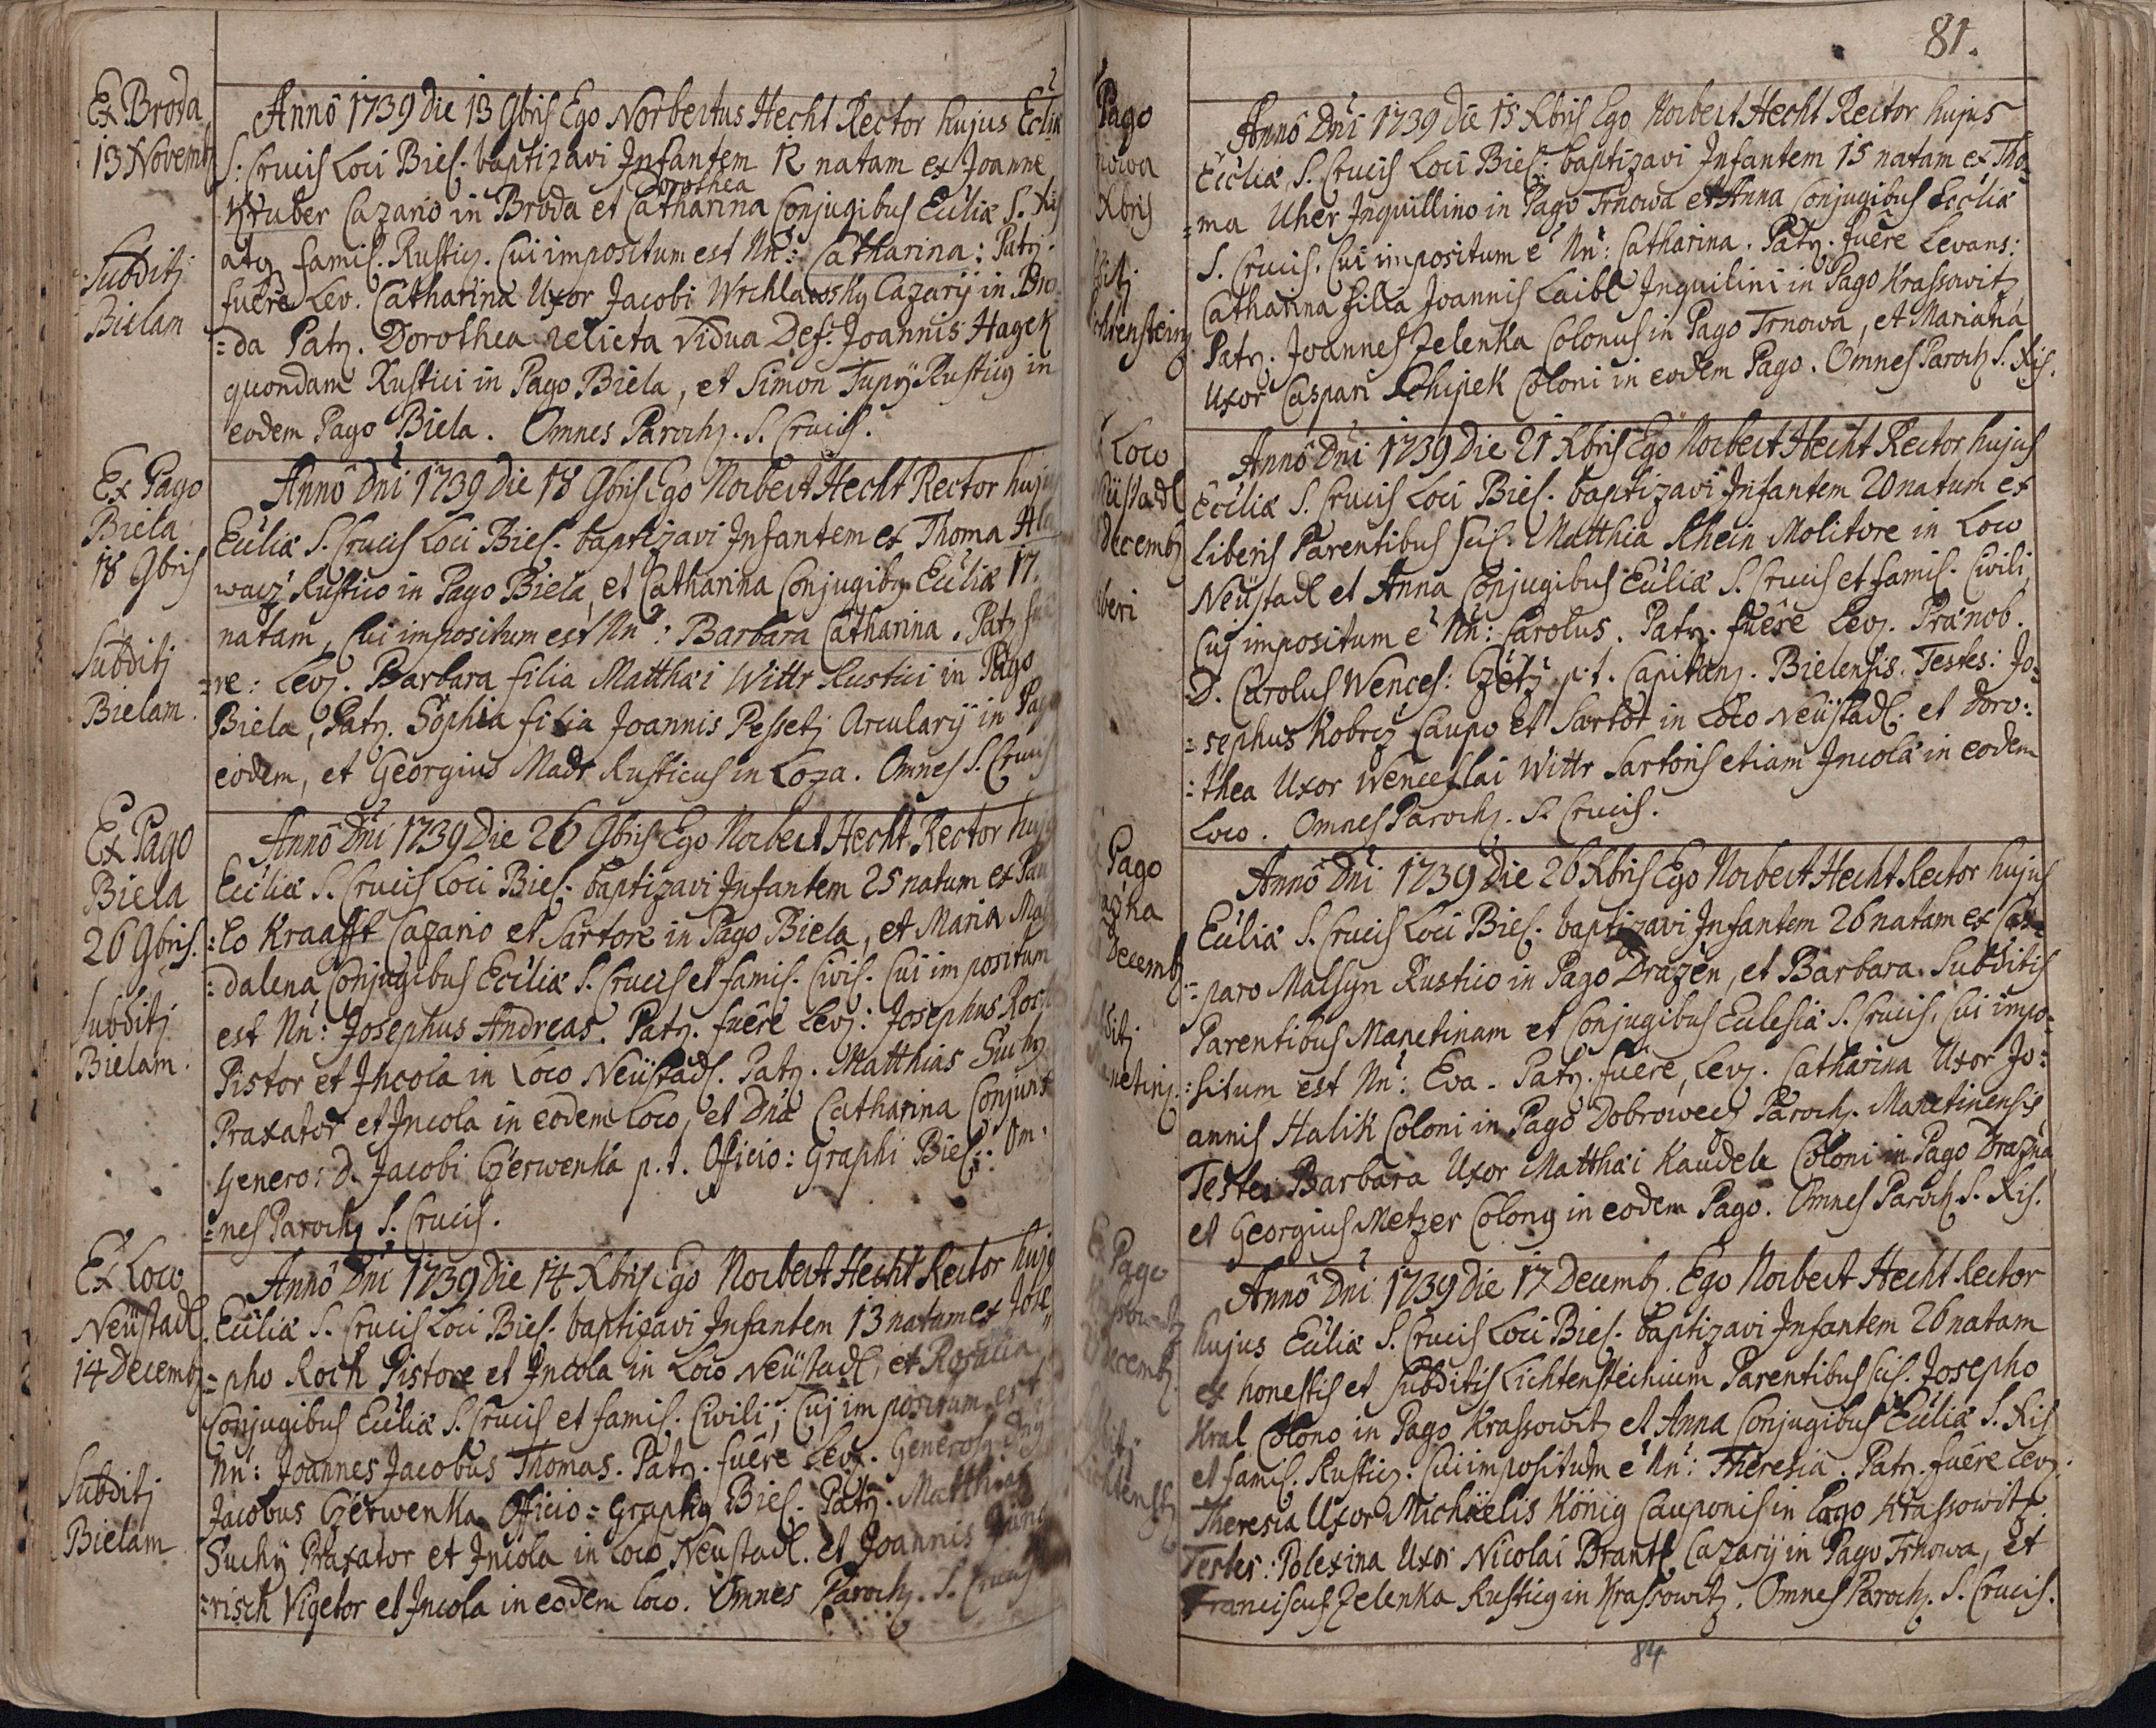 Ex Broda
13 Novemb
Subditj
Bielam
Annô 1739 die 13 9bris Ego Norbertus Hecht Rector hujus Ecliæ
S. Crucis Loci Biel. baptizavi Infantem 12 natam ex Joanne
Hruber Cazario in Broda et Catharina Conjugibus Ecliæ S. Xis
Dorothea
atq famil. Rusticæ. Cui impositum est Nn: Catharina: Patr.
fuêre Lev. Catharina Uxor Jacobi Wrchlawsky Cazarij in Bro
=da Patr. Dorothea relicta Vidua Def. Joannis Hagek
quondam Rustici in Pago Biela, et Simon Tupÿ Rusticq in
eodem Pago Biela. Omnes Paroch. S. Crucis.
Ex Pago
Biela
18 9bris
Subditj
Bielam.
Annô Dni 1739 Die 18 9bris Ego Norbert Hecht Rector hujq
Ecliæ S. Crucis Loci Biel. baptizavi Infantem ex Thoma Hla
wacz Rustico in Pago Biela, et Catharina Conjugibq Ecliæ 17.
natam, Cui impositum est Nn: Barbara Catharina. Patr. fuê
=re: Lev. Barbara filia Matthæi Wittr Rustici in Pago
Biela, Patr. Sophia filia Joannis Pessetz Arcularij in Pago
eodem, et Georgius Madr Rusticus in Loza. Omnes S. Crucis
Ex Pago
Biela
26 9bris.
Subditj
Bielam.
Annô Dni 1739 Die 26 9bris Ego Norbert Hecht Rector hujq
Ecliæ S. Crucis Loci Biel. baptizavi Infantem 25 natum ex Pau
:lo Kraafft Cazario et Sartore in Pago Biela, et Maria Mag
:dalena Conjugibus Ecliæ S. Crucis et famil. Civil. Cui impositum
est Nn: Josephus Andreas. Patr. fuêre Lev: Josephus Roch
Pistor et Incola in Loco Neüstadl. Patr. Matthias Suchÿ
Praxator et Incola in eodem Loco, et Dna Catharina Conjunx
Genero: D. Jacobi Czerwenka p.t. Officio: Graphi Biel.: Om
=nes Paroch S. Crucis.
Ex Loco
Neüstadl.
14 Decemb
Subditj
Bielam
Annô Dni 1739 Die 14 Xbris Ego Norbert Hecht Rector hujq
Ecliæ S. Crucis Loci Biel. baptizavi Infantem 13 natum ex Jose
=pho Roch Pistore et Incola in Loco Neüstadl, et Rosalia
Conjugibus Ecliæ S. Crucis et famil. Civili; Cuj impositum est
Nn: Joannes Jacobus Thomas. Patr. fuêre Lev. Generosq Dnq
Jacobus Czerwenka Officio=Graphq Biel. Patr. Matthias
Suchÿ Praxator et Incola in Loco Neüstadl. et Joannis
=risch Vigetor et Incola in eodem loco. Omnes Paroch. S. Crucis
81.
Pago
nowa
Xbris
ditj.
chtenstein
Annô Dni 1739 Die 15 Xbris Ego Norbert Hecht Rector hujus
Ecliæ S. Crucis Loci Biel: baptizavi Infantem 15 natam ex Tho
=ma Uher Inquillino in Pago Trnowa et Anna Conjugibus Ecliæ
S. Crucis. Cui impositum e Nn: Catharina. Patr. fuêre Levans:
Catharina filia Joannis Laibl Inquilini in Pago Krassowitz
Patr. Joannes Zelenka Colonus in Pago Trnowa, et Mariana
Uxor Caspari Schipek Coloni in eodem Pago. Omnes Paroch S. Xis.
Loco
Neüstadl
Decemb
iberi
Annô Dni 1739 Die 21 Xbris Ego Norbert Hecht Rector hujus
Ecliæ S. Crucis Loci Biel. baptizavi Infantem 20 natum ex
Liberis Parentibus scil. Matthia Rhein Molitore in Loco
Neüstadl et Anna Conjugibus Ecliæ S. Crucis et famil. Civili
Cuj impositum e Nn: Carolus. Patr. fuêre Lev. Prænob.
D. Carolus Wences: Czetz p.t. Capitanq. Bielensis. Testes: Jo=
=sephus Kobrcz Caupo et Sartor in Loco Neüstadl. et Doro:
:thea Uxor Wenceslai Wittr Sartoris etiam Incolæ in eodem
Loco. Omnes Paroch. S. Crucis.
Pago
azna
Decemb
ditj
netinq
Annô Dni 1739 Die 26 Xbris Ego Norbert Hecht Rector hujus
Ecliæ S. Crucis Loci Biel. baptizavi Infantem 26 natam ex Cas=
=paro Malsyn Rustico in Pago Drazen, et Barbara. Subditis
Parentibus Manetinam et Conjugibus Eclesiæ S. Crucis. Cui impo=
:situm est Nn: Eva. Patr. fuêre, Lev. Catharina Uxor Jo:
annis Halik Coloni in Pago Dobrowecz Paroch. Manetinensis
Testes Barbara Uxor Matthæi Kaudele Coloni in Pago Drazna
et Georgius Metzer Colonq in eodem Pago. Omnes Paroch S. Xis.
Ex Pago
Krassowitz
Decemb.
ditj.
Lichtenst
Annô Dni 1739 Die 17 Decemb. Ego Norbert Hecht Rector
hujus Ecliæ S. Crucis Loci Biel. baptizavi Infantem 26 natam
ex honestis et subditis Lichtensteinium Parentibus scil. Josepho
Kral Colono in Pago Krassowitz et Anna Conjugibus Ecliæ S. Xis
et famil. Rusticq. Cui impositum e Nn: Theresia. Patr. fuêre Lev.
Theresia Uxor Michaëlis König Cauponis in Pago Krassowitz.
Testes: Polexina Uxor Nicolai Brantl Cazarij in Pago Trnowa, et
Franciscus Zelenka Rusticq in Krassowitz. Omnes Paroch. S. Crucis.
84